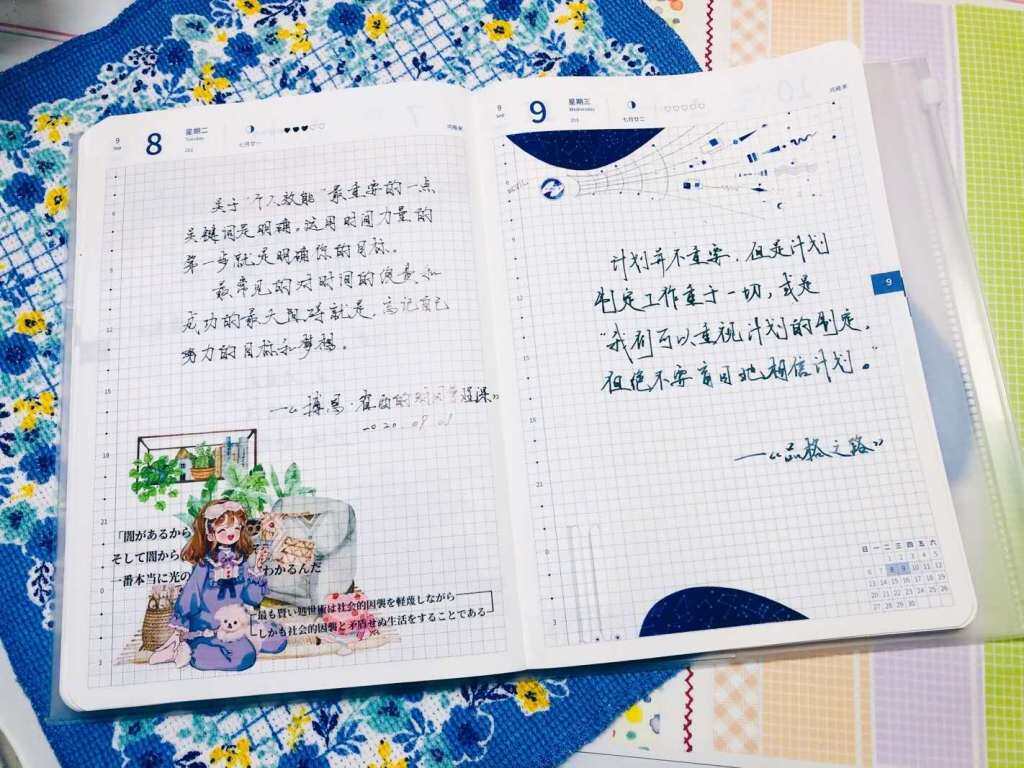 9
Sep
8
星期二
Tuesday
七月廿一
关于“个人效能”最重要的一点
关键词是明确。运用时间力量的
第一步就是明确你的目标。
最常见的对时间的浪费和
成功的最大阻碍就是,忘记自己
努力的目标和梦想。
2020.09.08
「闇があるから
そして闇から
一番本当に光の
わかるんだ
最も賢い処世術は社会的因襲を軽蔑しながら
しかも社会的因襲と矛盾せぬ生活をすることである
9
Sep
9
星期三
Wednesday
七月廿二
计划并不重要,但是计划
制定工作重于一切,或是
“我们可以重视计划的制定,
但绝不要盲目地相信计划。”
—《品格之路》
9
日 一 二 三 四 五 六
1 2 3 4 5
6 7 8 9 10 11 12
13 14 15 16 17 18 19
20 21 22 23 24 25 26
27 28 29 30